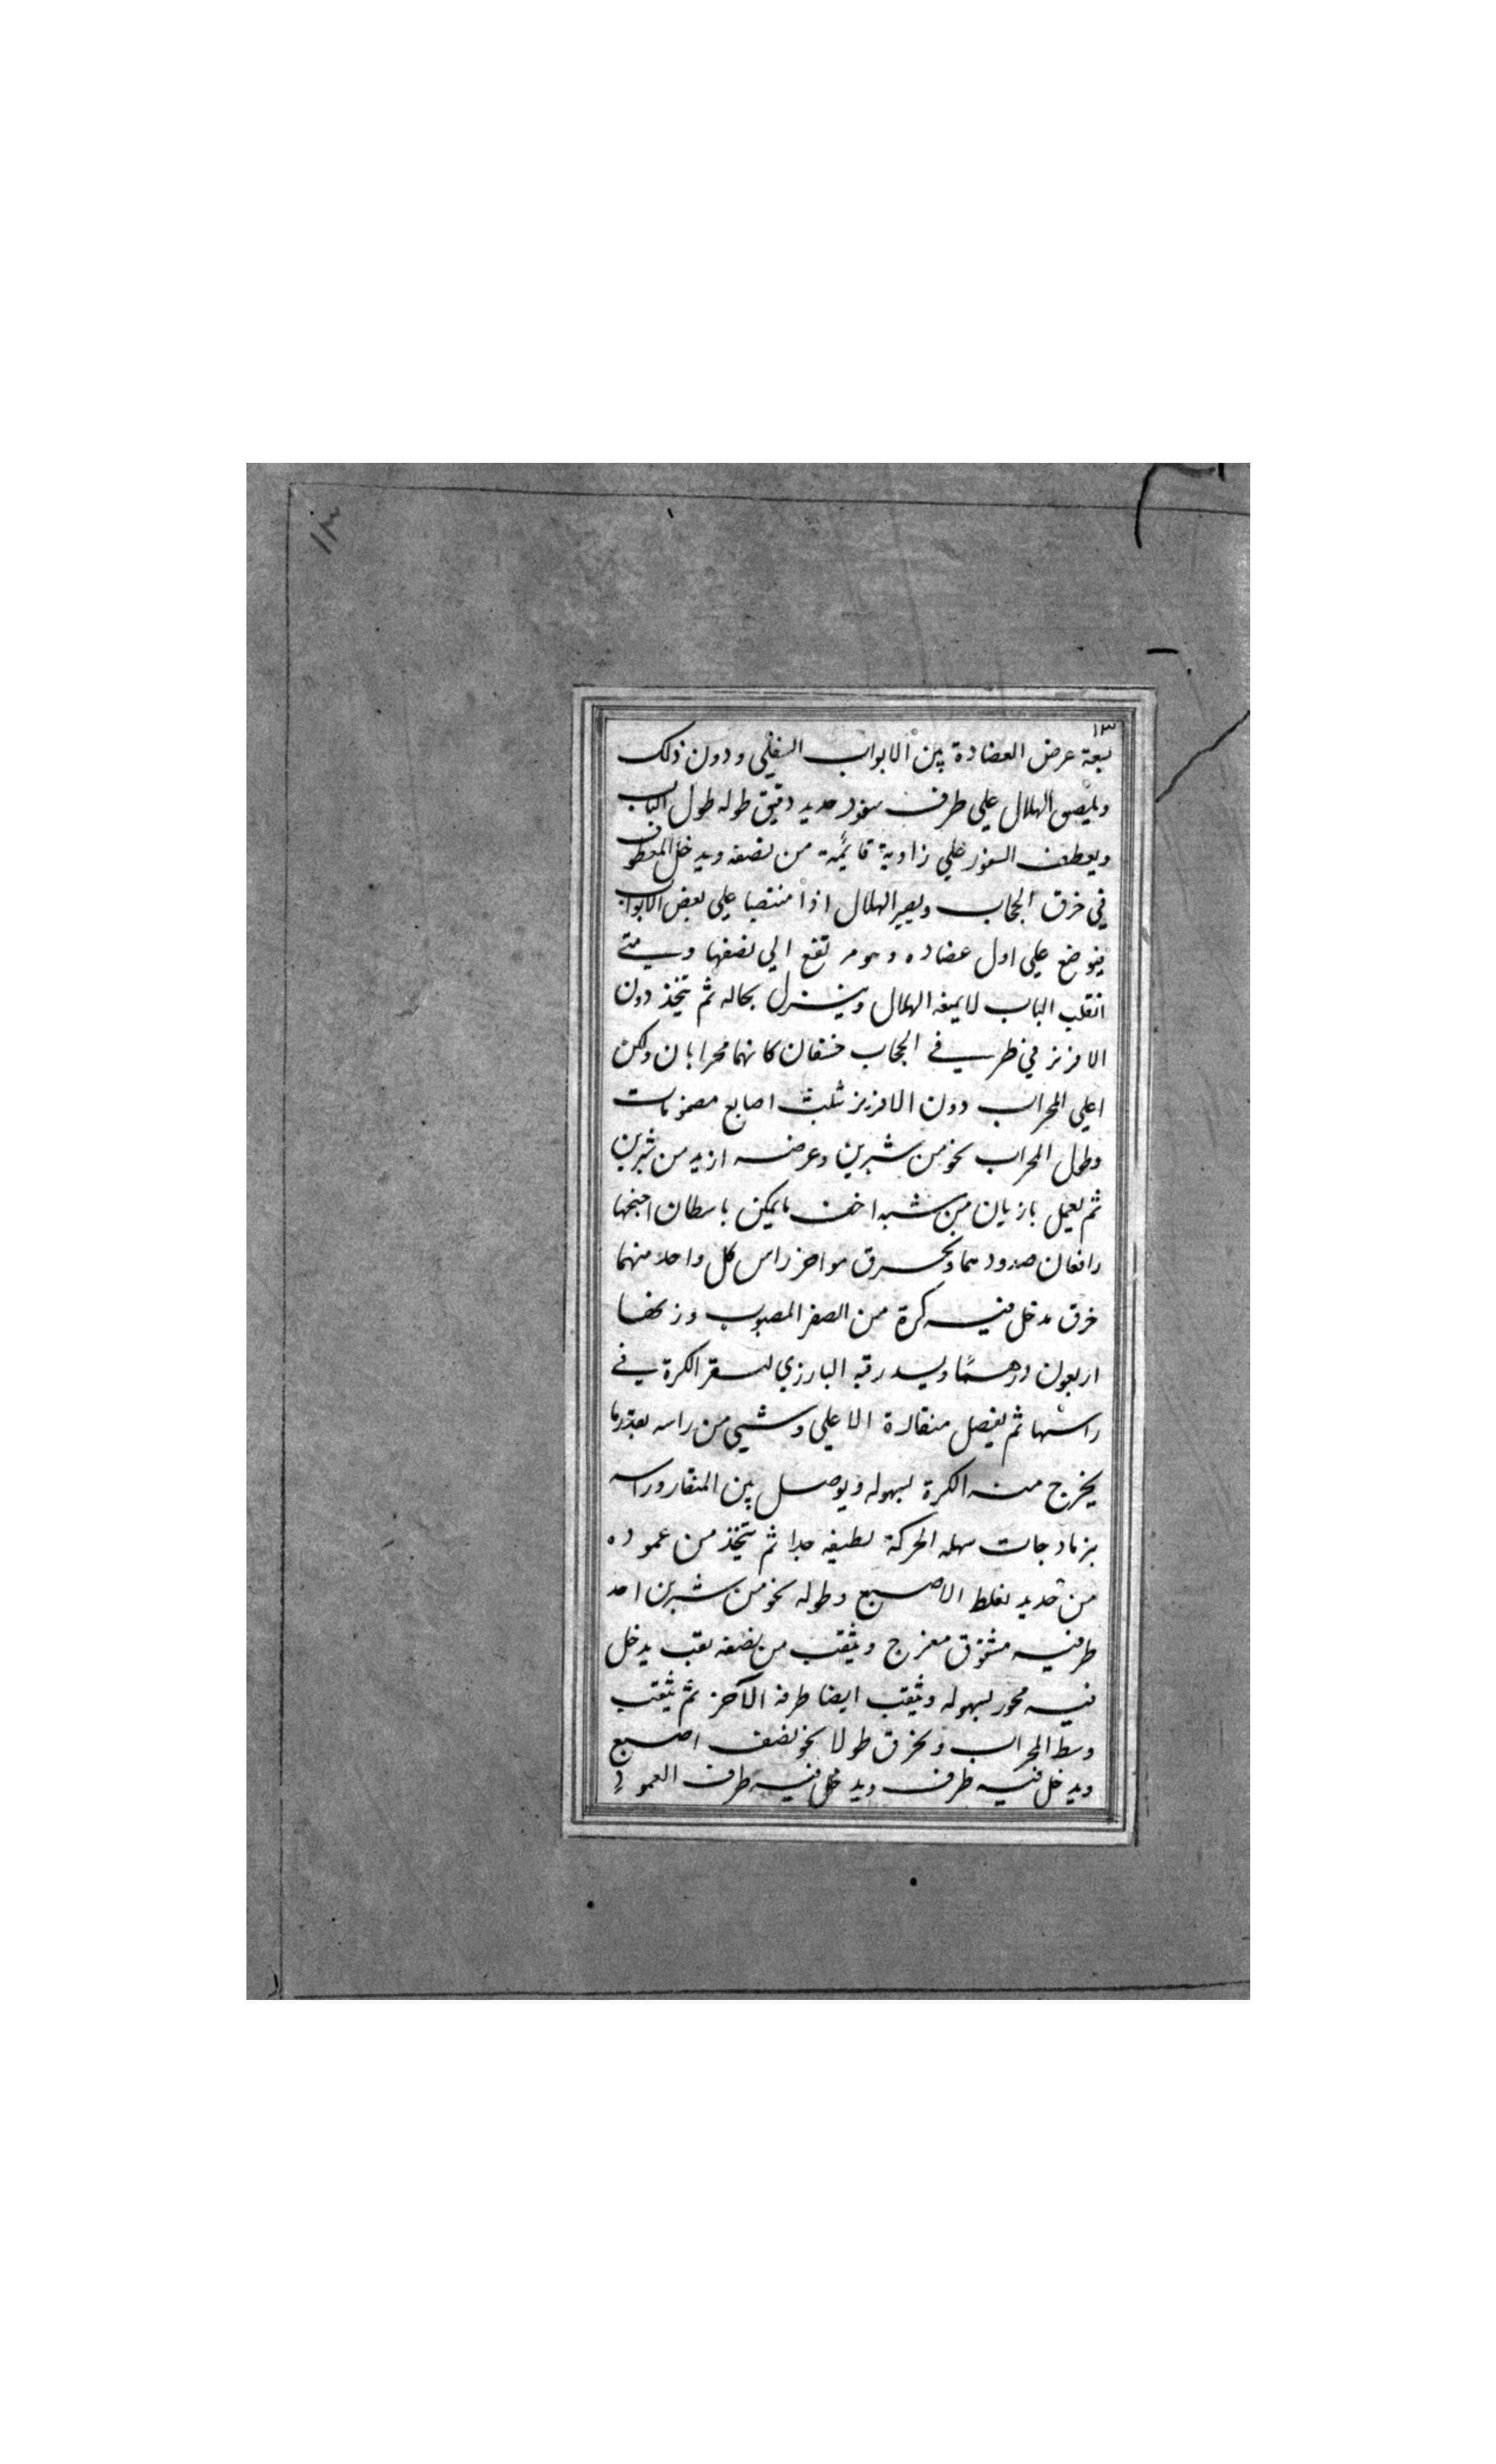 ١٣
١٣
بسعة عرض العضادة بين الابواب السفلي ودون ذلك
ويلصق الهلال علي طرف سفود حديد دقيق طوله طول الباب
ويعطف السفود علي زاوية قائمة من نصفه ويدخل المعطوف
في خرق الحجاب ويصير الهلال اذا منتصبا علي بعض الابواب
فيوضع علي اول عضاده وهو مرتفع الي نصفها ومتي
انقلب الباب لا يمنعه الهلال وينزل بحاله ثم يتخذ دون
الافريز في طرفي الحجاب خسفان كانهما محرابان ولكن
اعلي المحراب دون الافريز ثلث اصابع مضمومات
وطول المحراب نحو من شبرين وعرضه ازيد من شبرين
ثم يعمل بازيان من شبه اخف ما يمكن باسطان اجنحها
رافعان صدورهما ويخرق مواخر راس كل واحد منهما
خرق يدخل فيه كرة من الصفر المصبوب وزنها
اربعون درهما ويسد رقبة البازي لتستقر الكرة في
راسها ثم يفصل منقاره الاعلي وشيي من راسه بقدر ما
يخرج منه الكرة بسهوله ويوصل بين المنقار وراسه
بنرمادجات سهله الحركة لطيفه جدا ثم يتخذ من عموده
من حديد بغلظ الاصبع وطوله نحو من شبرين احد
طرفيه مشقوق معوج ويثقب من نصفه ثقب يدخل
فيه محور بسهوله ويثقب ايضا طرفه الآخر ثم يثقب
وسط المحراب ويخرق طولا نحو نصف اصبع
ويدخل فيه طرف ويدخل فيه طرف العمود